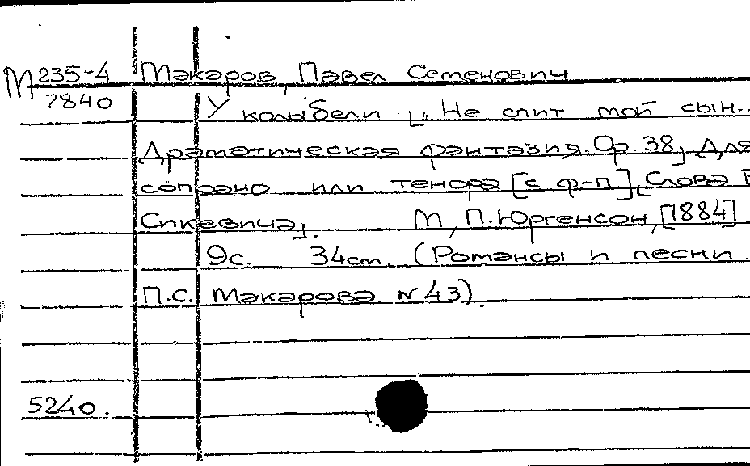 М 235-4 Макаров, Павел Семенович
7840 У колыбели [„Не спит мой сын..
Драматическая фантазия. Ор. 38] Для
сопрано или тенора [с ф-п] [Слова
Сикевича]. М, П. Юргенсон, [1884]
9с. 34cm. (Романсы и песни
П.С. Макарова N 43).
5240.